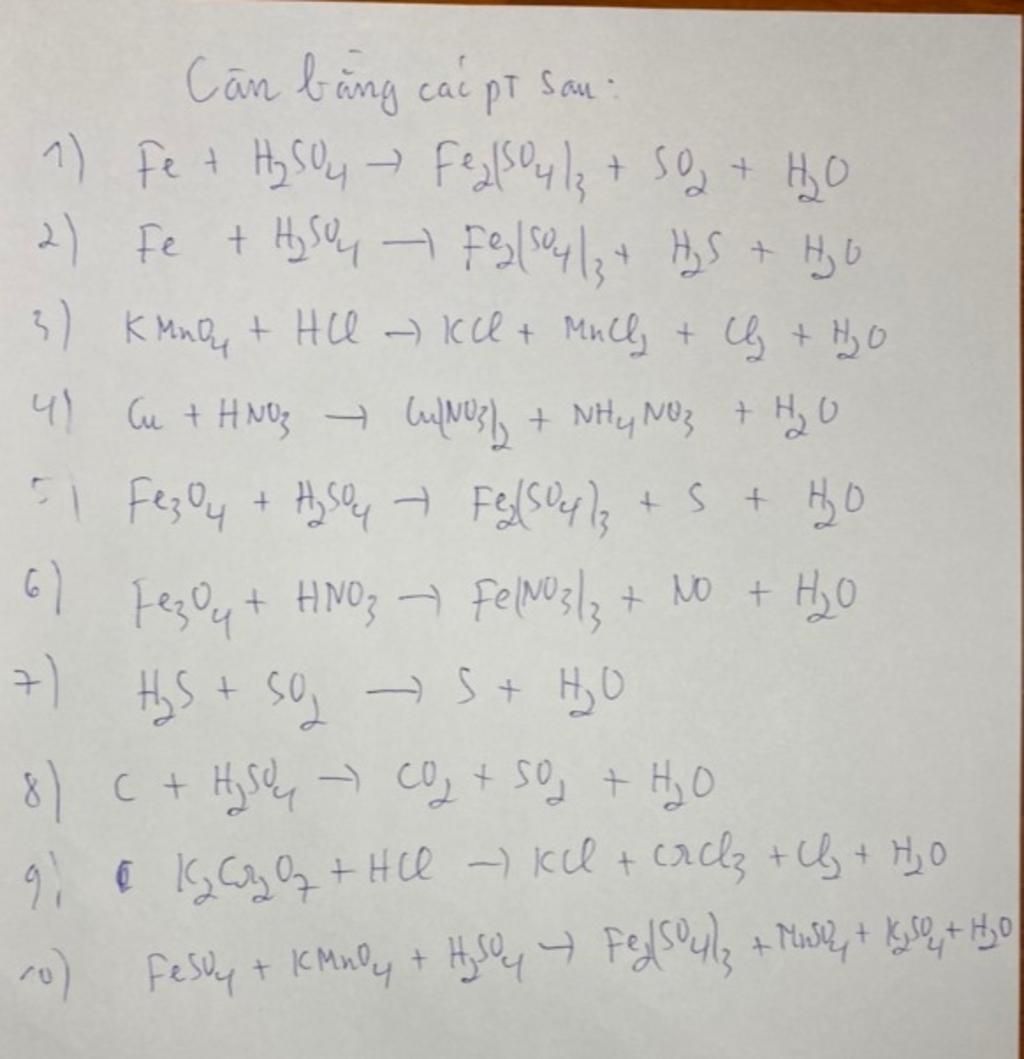 Cân bằng các PT sau:
1) Fe + H₂SO₄ → Fe₂(SO₄)₃ + SO₂ + H₂O
2) Fe + H₂SO₄ → Fe₂(SO₄)₃ + H₂S + H₂O
3) KMnO₄ + HCl → KCl + MnCl₂ + Cl₂ + H₂O
4) Cu + HNO₃ → Cu(NO₃)₂ + NH₄NO₃ + H₂O
5) Fe₃O₄ + H₂SO₄ → Fe₂(SO₄)₃ + S + H₂O
6) Fe₃O₄ + HNO₃ → Fe(NO₃)₃ + NO + H₂O
7) H₂S + SO₂ → S + H₂O
8) C + H₂SO₄ → CO₂ + SO₂ + H₂O
9) K₂Cr₂O₇ + HCl → KCl + CrCl₃ + Cl₂ + H₂O
10) FeSO₄ + KMnO₄ + H₂SO₄ → Fe₂(SO₄)₃ + MnSO₄ + K₂SO₄ + H₂O